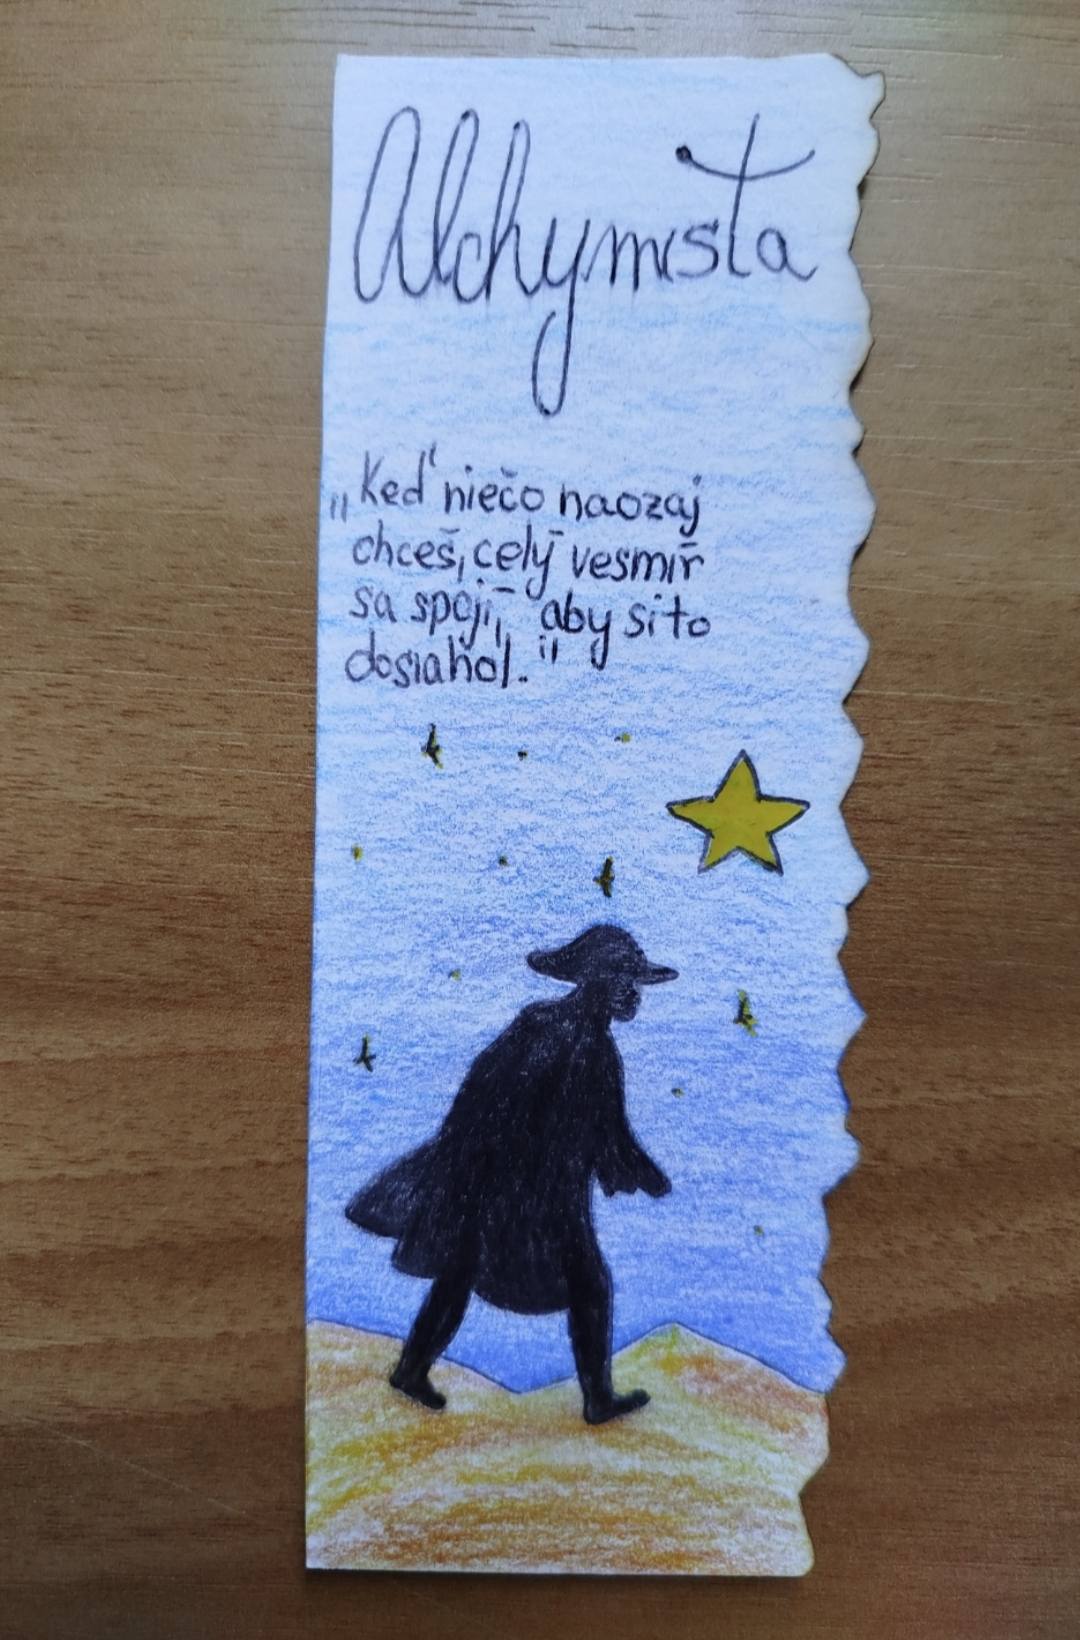 Alchymista
„Keď niečo naozaj
chceš, celý vesmír
sa spojí, aby si to
dosiahol."